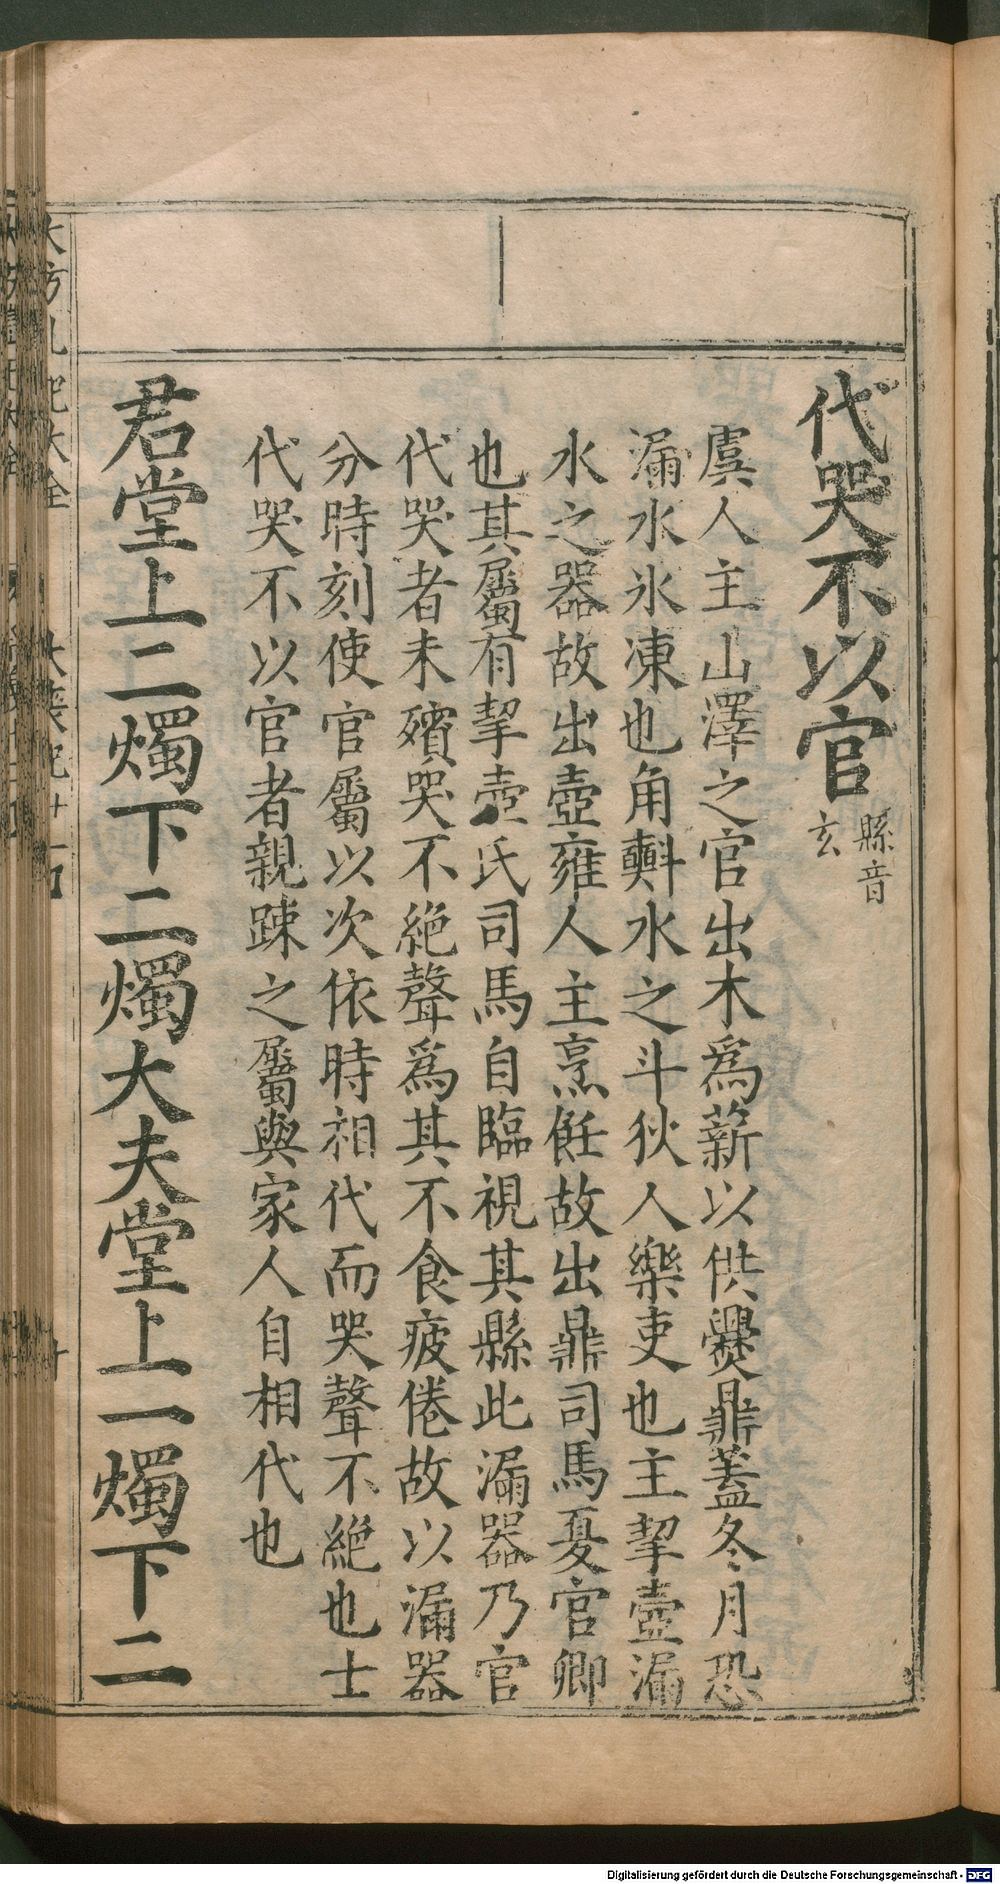 代哭不以官
縣音
玄
虞人主山澤之官出木爲薪以供爨鼎蓋冬月恐
漏水氷凍也角㪺水之斗狄人樂吏也主挈壺漏
水之器故出壺雍人主烹飪故出鼎司馬夏官卿
也其屬有挈壺氏司馬自臨視其縣此漏器乃官
代哭者未殯哭不絶聲爲其不食疲倦故以漏器
分時刻使官屬以次依時相代而哭聲不絶也士
代哭不以官者親踈之屬與家人自相代也
君堂上二燭下二燭大夫堂上一燭下二
Digitalisierung gefördert durch die Deutsche Forschungsgemeinschaft - DFG